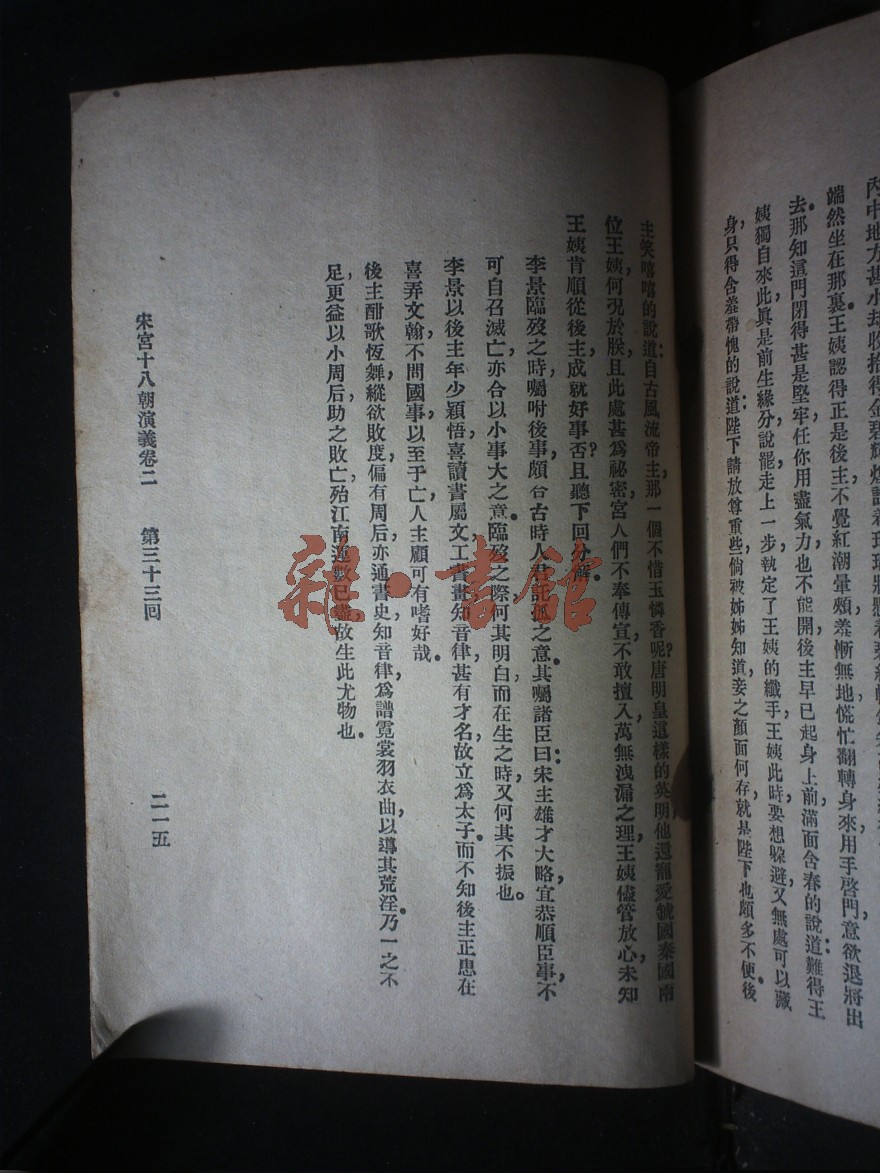 內中地方甚小却收拾得金碧輝煌
端然坐在那裏王姨認得正是後主不覺紅潮暈頰羞慚無地慌忙翻轉身來用手啓門意欲退將出
去。那知這門閉得甚是堅牢任你用盡氣力也不能開後主早已起身上前滿面含春的說道難得王
姨獨自來此眞是前生緣分說罷走上一步執定了王姨的纖手王姨此時要想躱避又無處可以藏
身,只得含羞帶愧的說道:陛下請放尊重些倘被姊姊知道,妾之顏面何存就是陛下也頗多不便。後
主笑嘻嘻的說道:自古風流帝主那一個不惜玉憐香呢?唐明皇這樣的英明他還寵愛虢國秦國兩
位王姨,何况於朕且此處甚爲祕密宮人們不奉傳宣,不敢擅入萬無洩漏之理王姨儘管放心未知
王姨肯順從後主,成就好事否?且聽下回分解。
李景臨歿之時囑咐後事頗合古時人君託孤之意其囑諸臣曰:宋主雄才大略,宜恭順臣事,不
可自召滅亡,亦合以小事大之意。臨歿之際,何其明白而在生之時又何其不振也。
李景以後主年少穎悟喜讀書屬文,工書畫知音律,甚有才名故立爲太子。而不知後主正患在
喜弄文翰,不問國事,以至于亡人主顧可有嗜好哉。
後主酣歌恆舞,縱欲敗度,偏有周后亦通書史,知音律,爲譜霓裳羽衣曲,以導其荒淫。乃一之不
足,更益以小周后助之敗亡,殆江南運數已盡,故生此尤物也。
宋宮十八朝演義卷二 第三十三回 二一五
雜·書館